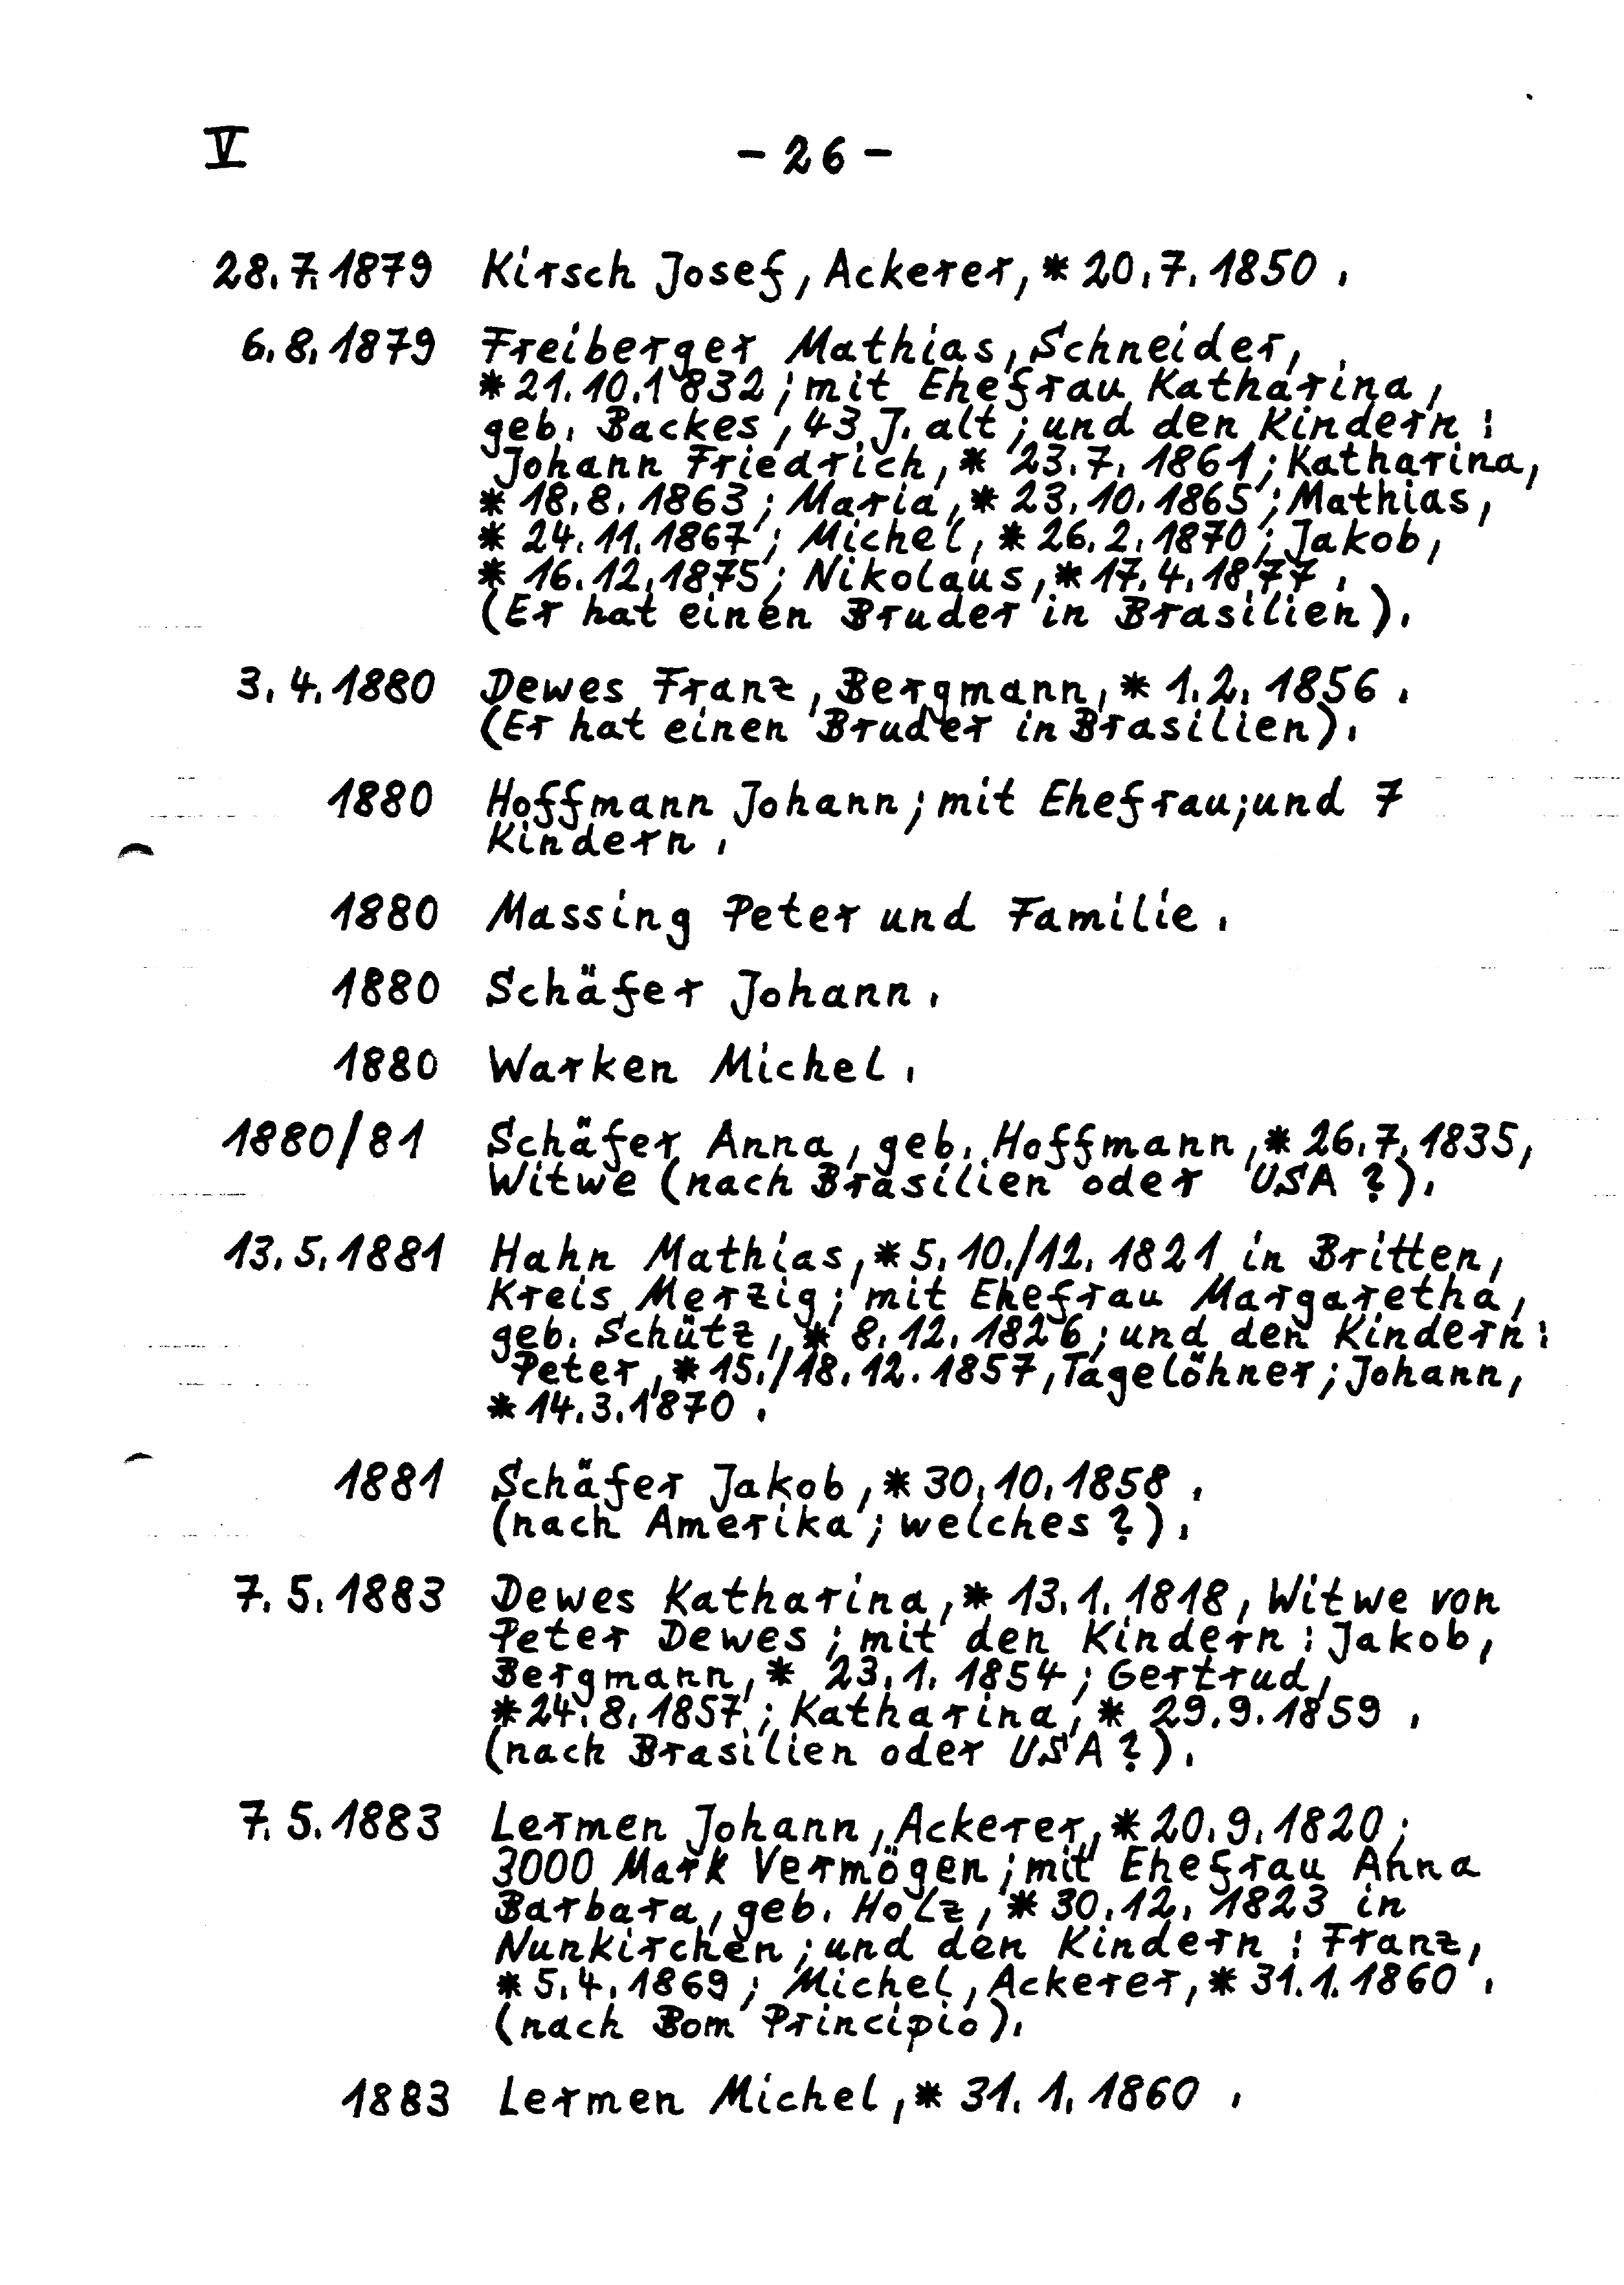 V
- 26 -
28.7.1879 Kirsch Josef, Ackerer, * 20.7.1850.
6.8.1879 Freiberger Mathias, Schneider,
* 21.10.1832; mit Ehefrau Katharina,
geb. Backes, 43 J. alt; und den Kindern:
Johann Friedrich, * 23.7.1861; Katharina,
* 18.8.1863; Maria, * 23.10.1865; Mathias,
* 24.11.1867; Michel, * 26.2.1870; Jakob,
* 16.12.1875; Nikolaus, * 17.4.1877.
(Er hat einen Bruder in Brasilien).
3.4.1880 Dewes Franz, Bergmann, * 1.2.1856.
(Er hat einen Bruder in Brasilien).
1880 Hoffmann Johann; mit Ehefrau; und 7
Kindern.
1880 Massing Peter und Familie.
1880 Schäfer Johann.
1880 Warken Michel.
1880/81 Schäfer Anna, geb. Hoffmann, * 26.7.1835,
Witwe (nach Brasilien oder USA ?).
13.5.1881 Hahn Mathias, * 5.10./12.1821 in Britten,
Kreis Merzig; mit Ehefrau Margaretha,
geb. Schütz, * 8.12.1826; und den Kindern:
Peter, * 15./18.12.1857, Tagelöhner; Johann,
* 14.3.1870.
1881 Schäfer Jakob, * 30.10.1858.
(nach Amerika; welches ?).
7.5.1883 Dewes Katharina, * 13.1.1818, Witwe von
Peter Dewes; mit den Kindern: Jakob,
Bergmann, * 23.1.1854; Gertrud,
* 24.8.1857; Katharina, * 29.9.1859.
(nach Brasilien oder USA ?).
7.5.1883 Lermen Johann, Ackerer, * 20.9.1820;
3000 Mark Vermögen; mit Ehefrau Anna
Barbara, geb. Holz, * 30.12.1823 in
Nunkirchen; und den Kindern: Franz,
* 5.4.1869; Michel, Ackerer, * 31.1.1860.
(nach Bom Principio).
1883 Lermen Michel, * 31.1.1860.